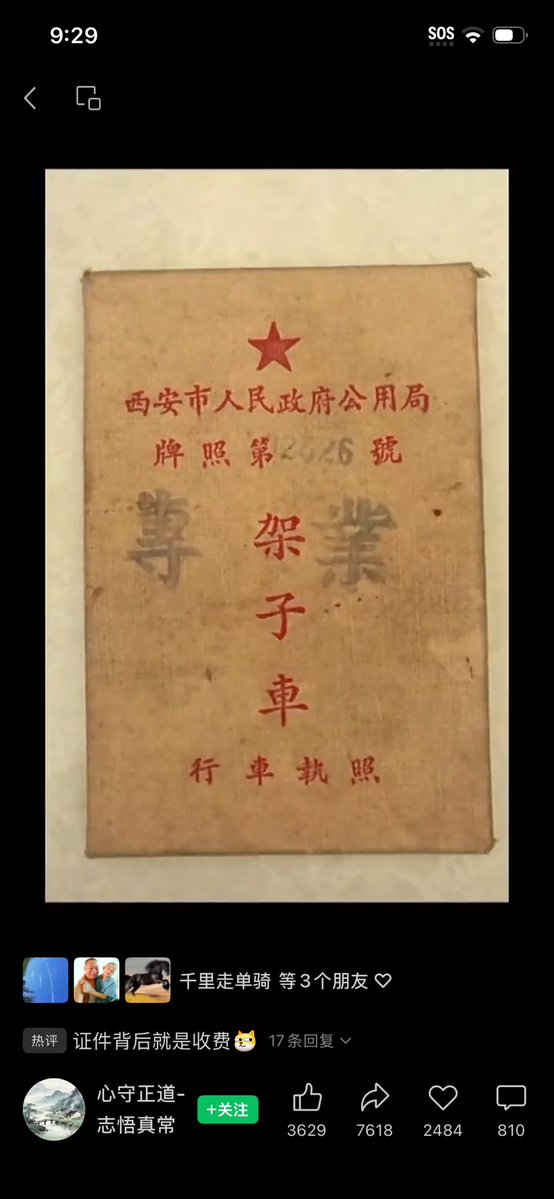 9:29
SOS
西安市人民政府公用局
牌照第2526號
專業
架子車
行車執照
千里走单骑 等3个朋友
热评 证件背后就是收费 17条回复
心守正道-
志悟真常
+关注
3629
7618
2484
810